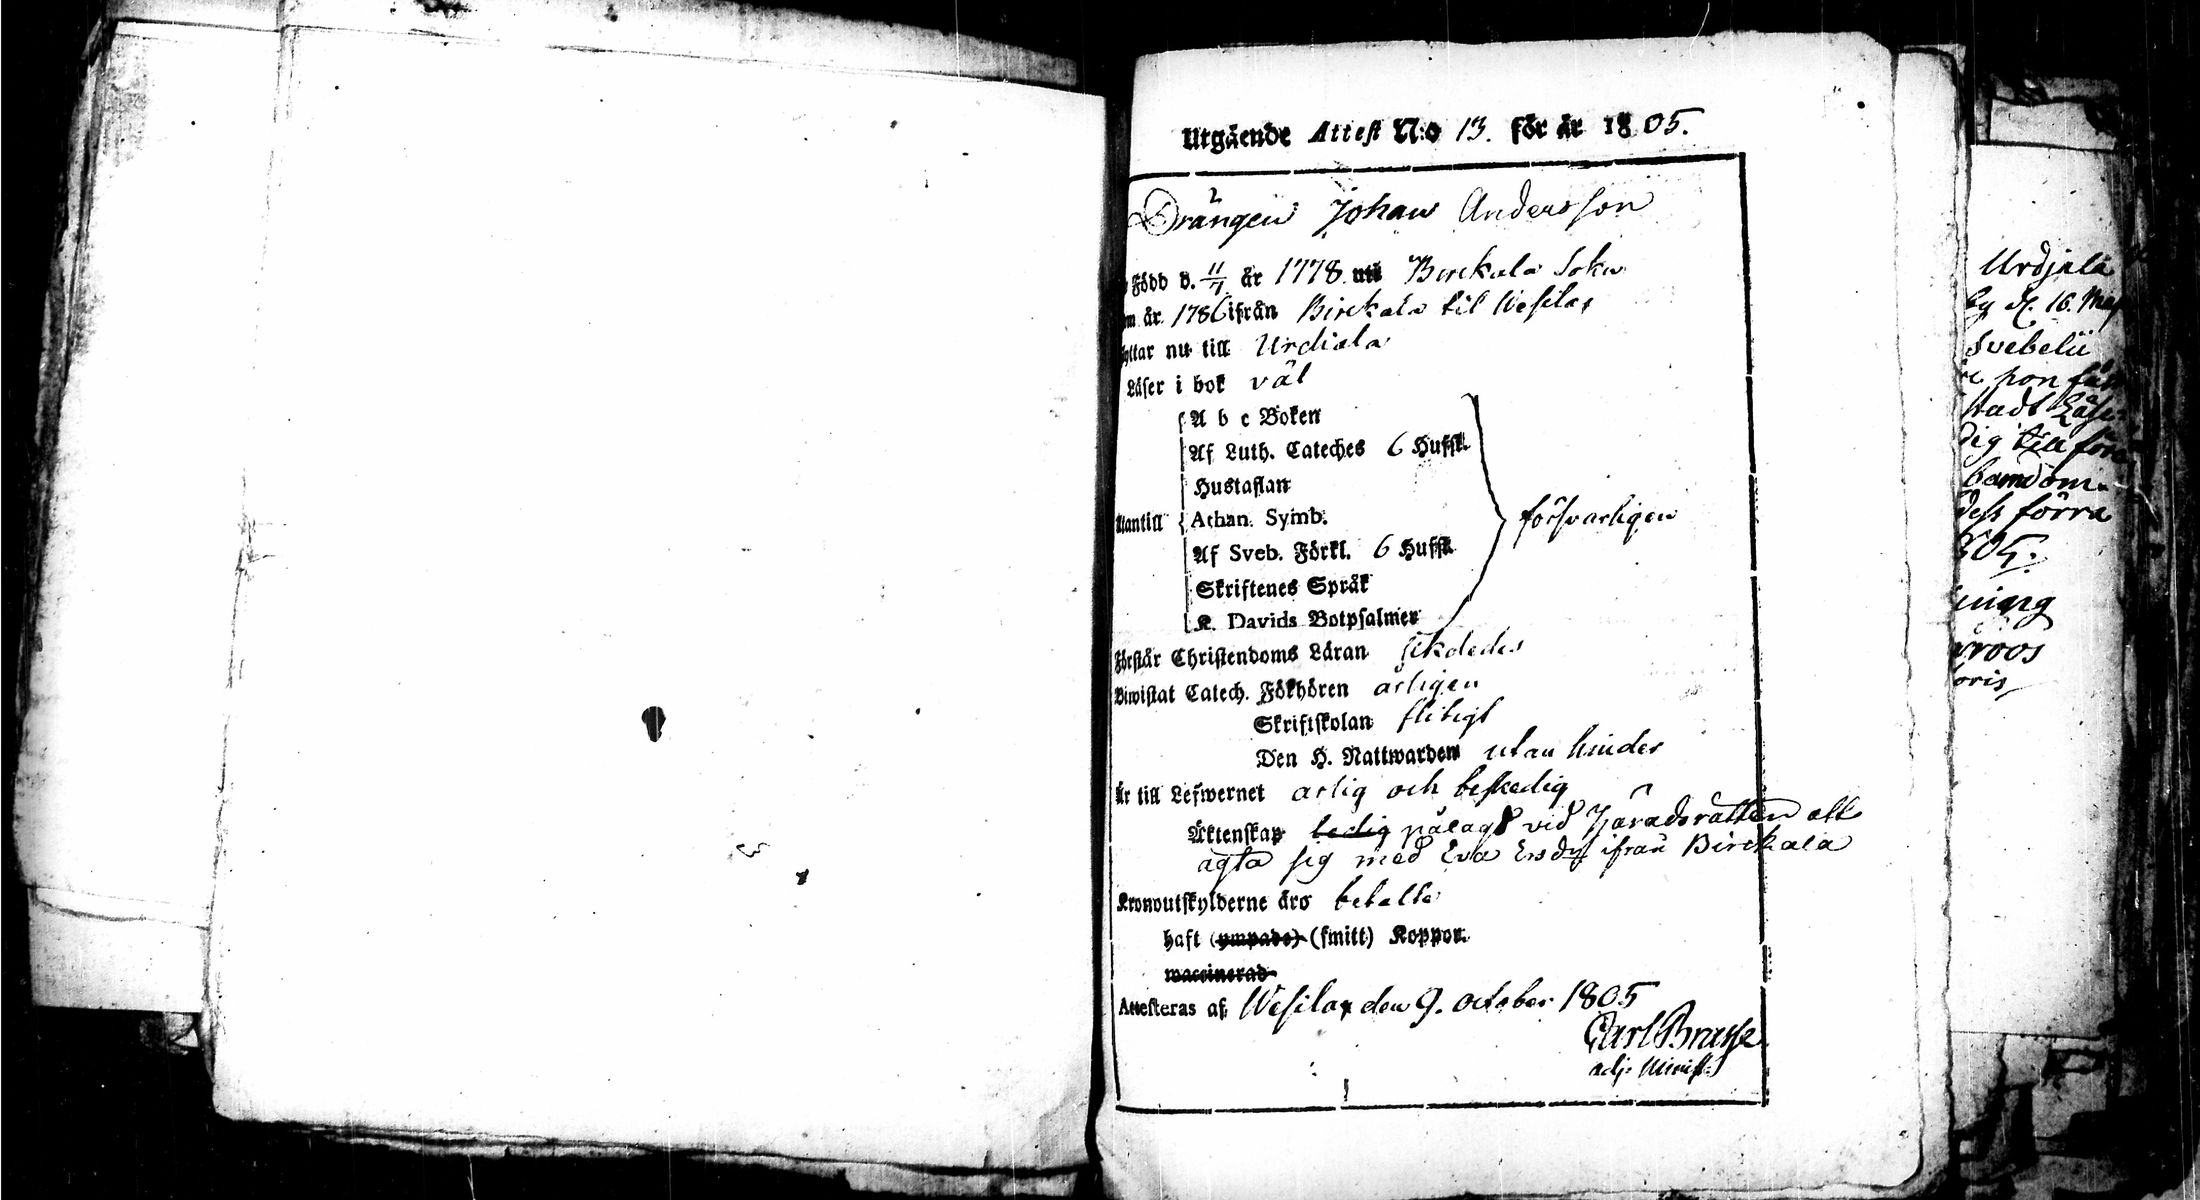 Utgående Attest N:o 13. för år 1805.
Drängen Johan Andersson
Född d. 11/7 år 1778 uti Birckala Sokn
om år 1786 ifrån Birckala til Wesilax
flyttar nu till Urdiala
Läser i bok väl
A b c Boken
Af Luth. Cateches 6 Hufst.
Hustaflan
Utantill Athan. Symb. försvarligen
Af Sveb. Förkl. 6 Hufst.
Skriftenes Språk
K. Davids Botpsalmer
Förstår Christendoms Läran sikdedes
Biwistat Catech. Förhören årligen
Skriftskolan flitigt
Den H. Nattwarden utan hinder
Är till Lefwernet ärlig och beskedig
Äktenskap ledig pålagd vid Häradsrätten att
ägta sig med Eva Ersdr ifrån Birckala
Kronoutskylderne äro betalte
haft (ympade) (smitt) Koppor.
waccinerad
Attesteras af Wesilax den 9. october 1805
Carl
adj. Minist.
Urdjala
by d. 16. Maj
Svebelii
hon
till
förra
805.